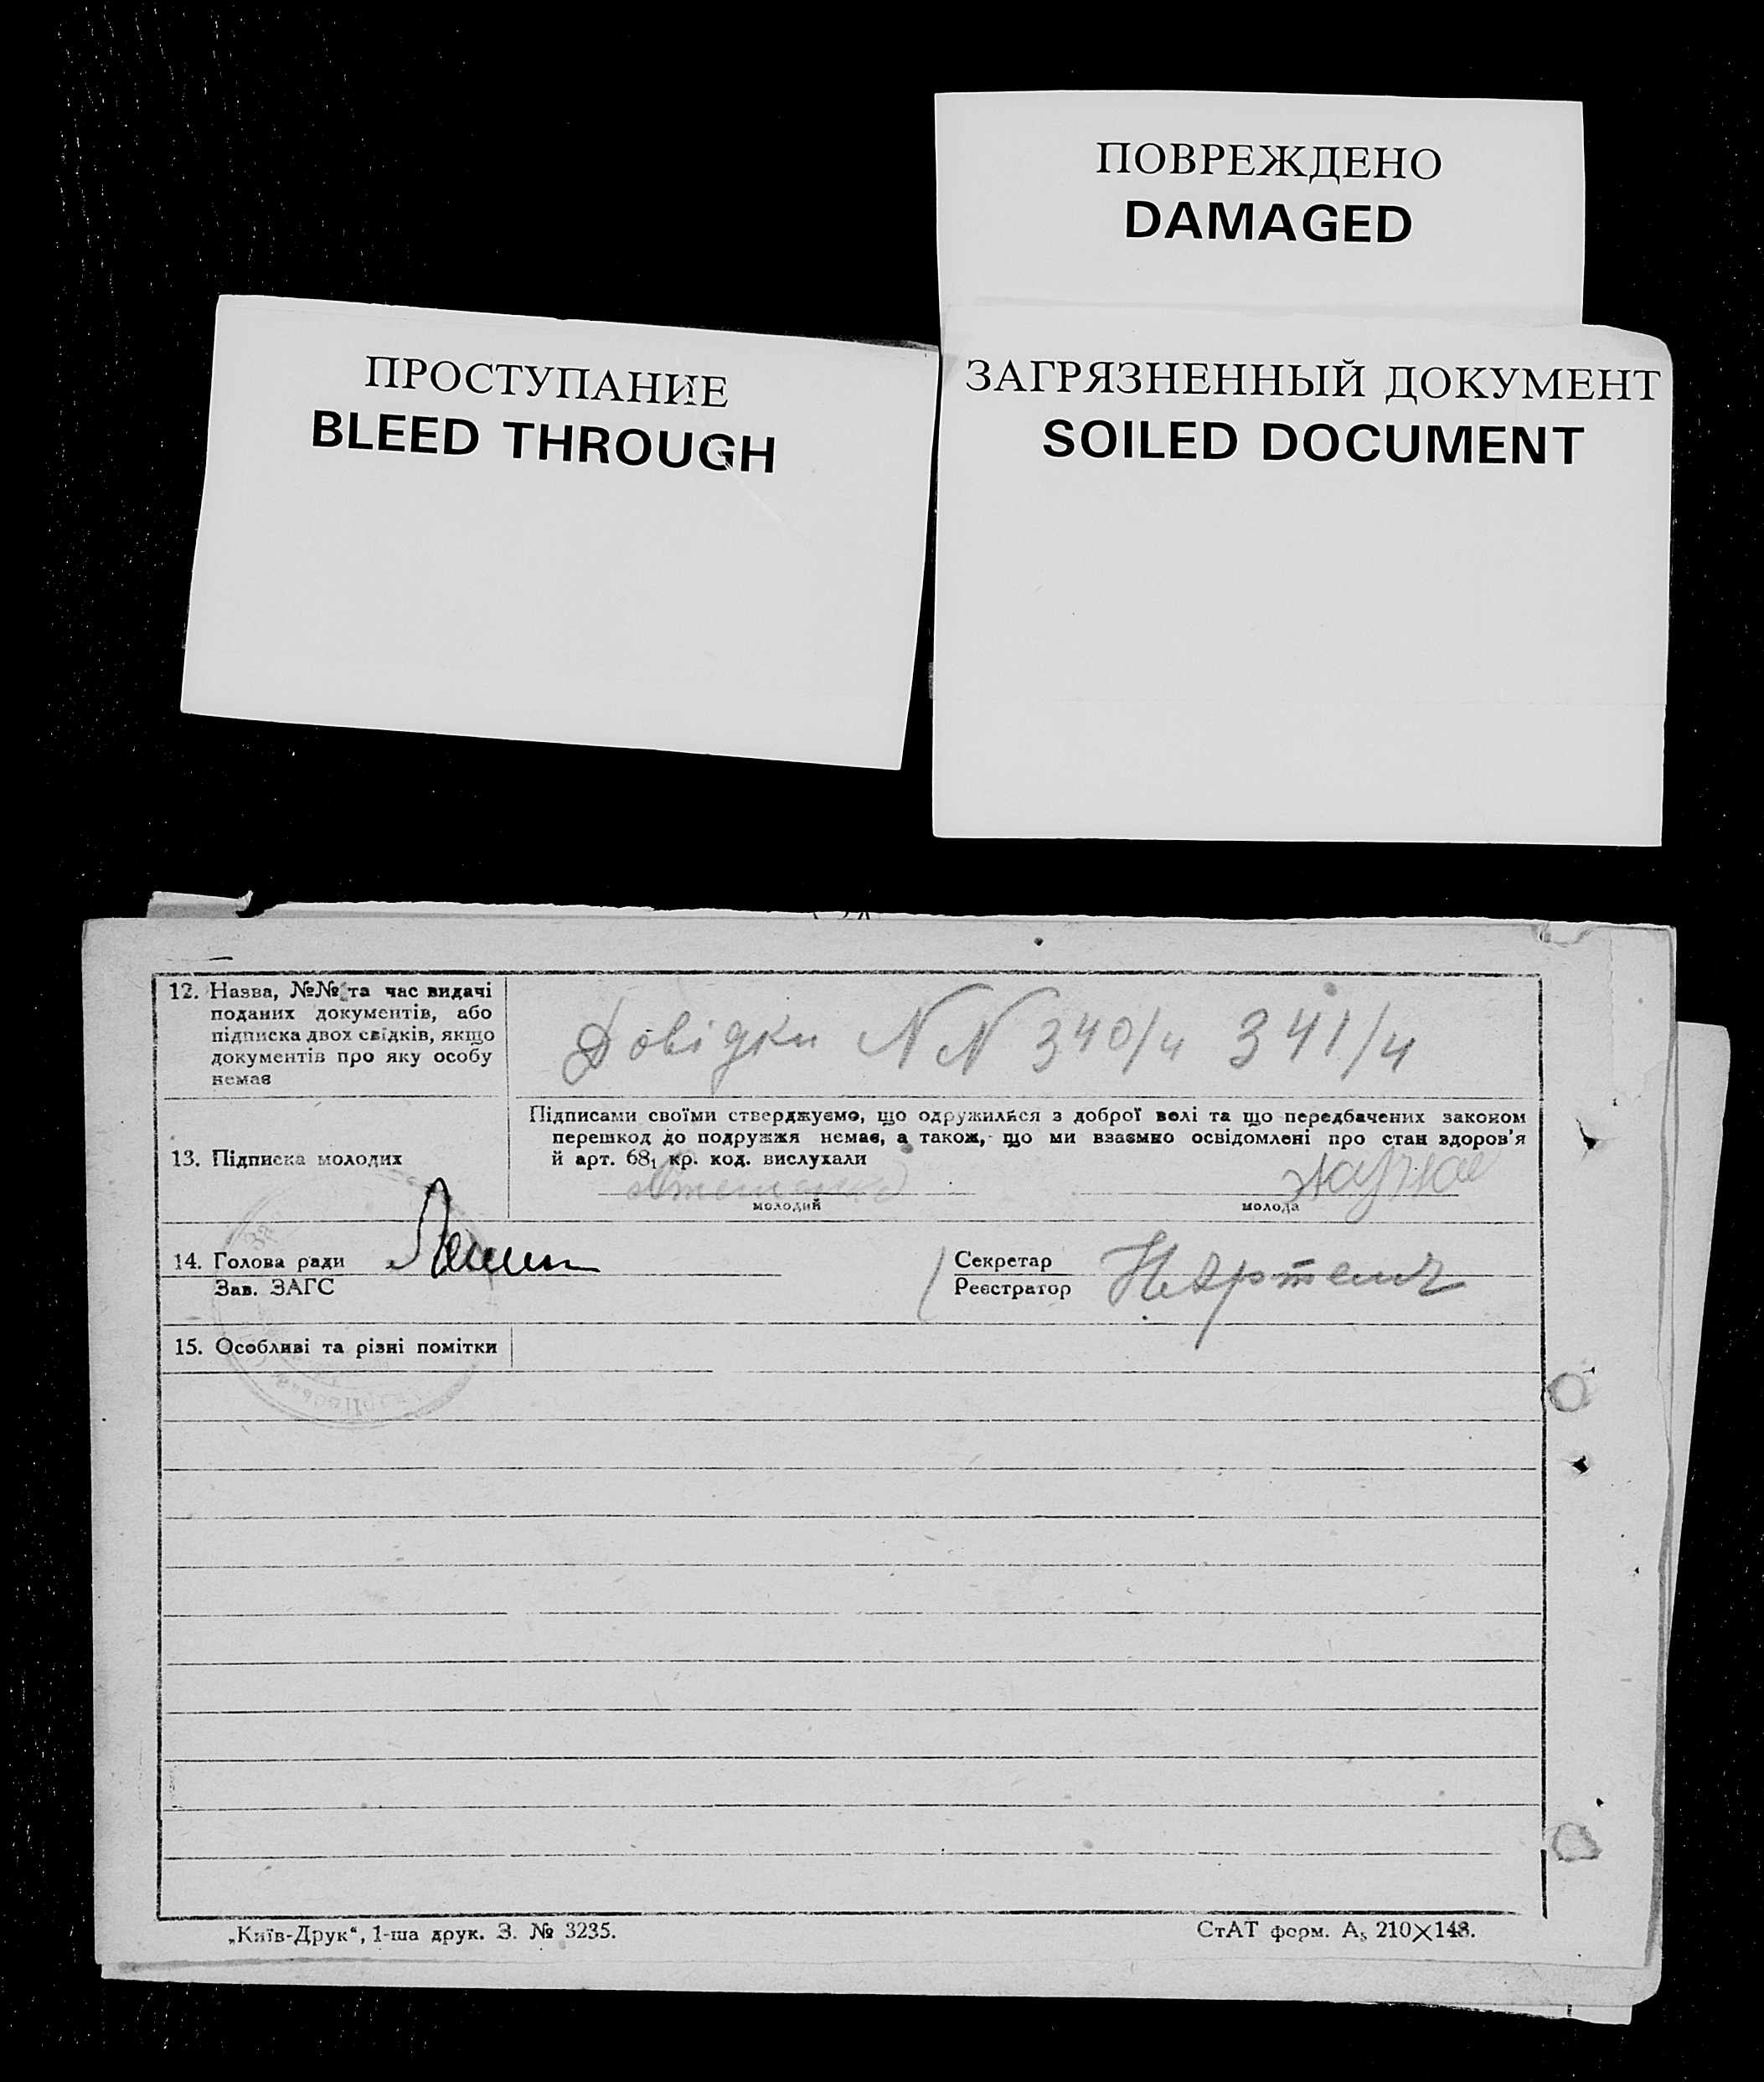 ПОВРЕЖДЕНО
DAMAGED
ПРОСТУПАНИЕ
BLEED THROUGH
ЗАГРЯЗНЕННЫЙ ДОКУМЕНТ
SOILED DOCUMENT
12. Назва, №№ та час видачі
поданих документів, або
підписка двох свідків, якщо
документів про яку особу
немає
Довідки N N 340/ч 341/ч
Підписами своїми стверджуємо, що одружилися з доброї волі та що передбачених законом
перешкод до подружжя немає, а також, що ми взаємно освідомлені про стан здоров'я
й арт. 68₁ кр. код. вислухали
13. Підписка молодих
молодий
молода
14. Голова ради
Зав. ЗАГС
Секретар
Реєстратор
15. Особливі та різні помітки
„Київ-Друк“, 1-ша друк. З. № 3235.
СтАТ форм. А₅ 210×148.